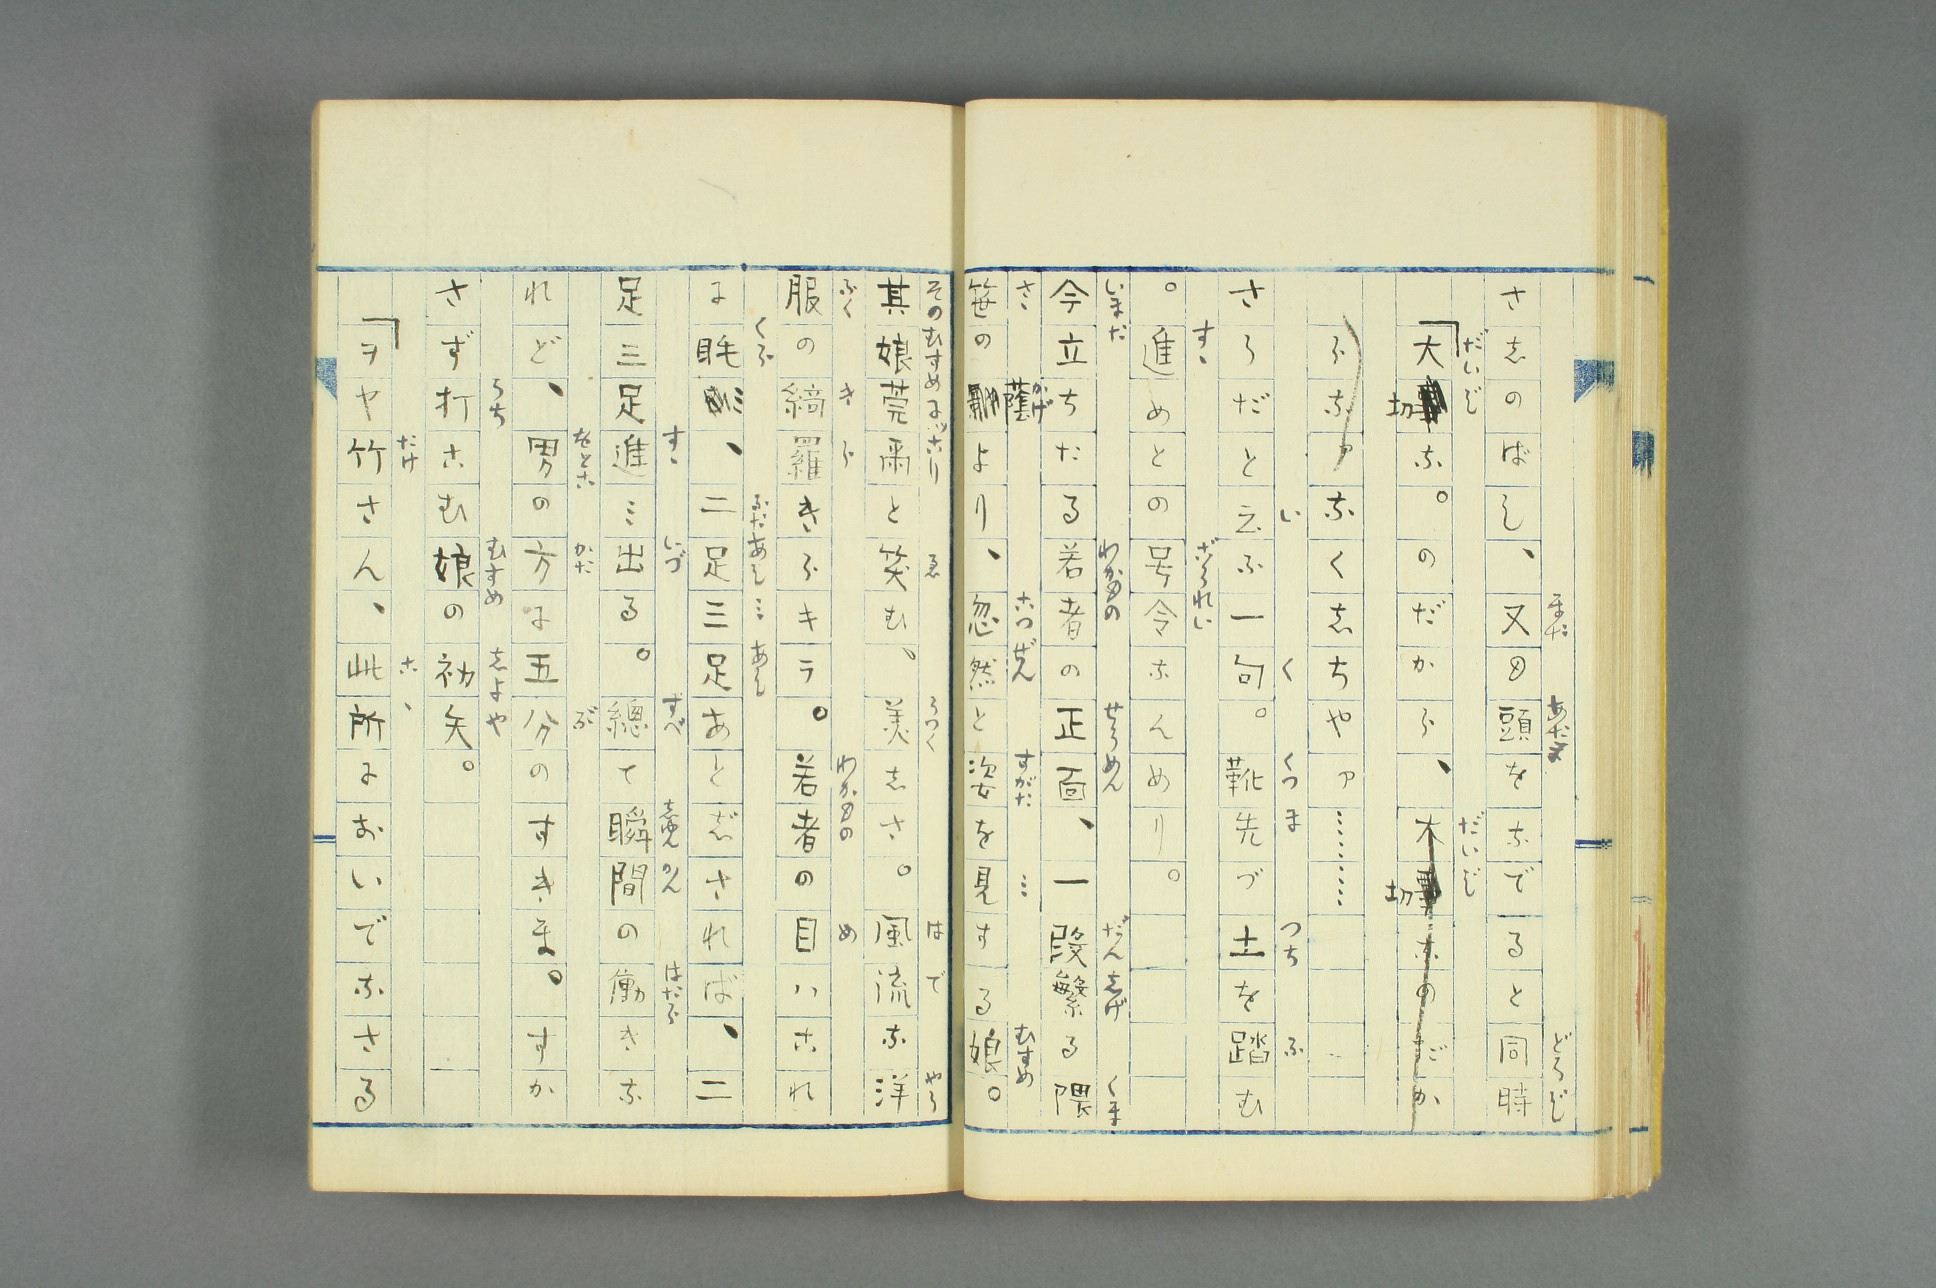 さしのばし、又も頭をなでると同時
「大切な。のだから、
らなァなくしちやァ………
さうだと云ふ一句。靴先づ土を踏む
。進めとの号令なんめり。
今立ちたる若者の正面、一段繁る隈
笹の蔭より、忽然と姿を見する娘。
其娘莞爾と笑む、。美しさ。風流な洋
服の縞羅きらキラ。若者の目ハこれ
に眩、二足三足あとじされば、二
足三足進ミ出る。總て瞬間の働きな
れど、男の方に五分のすきま。すか
さず打こむ娘の初矢。
「ヲヤ竹さん、此所においでなさる